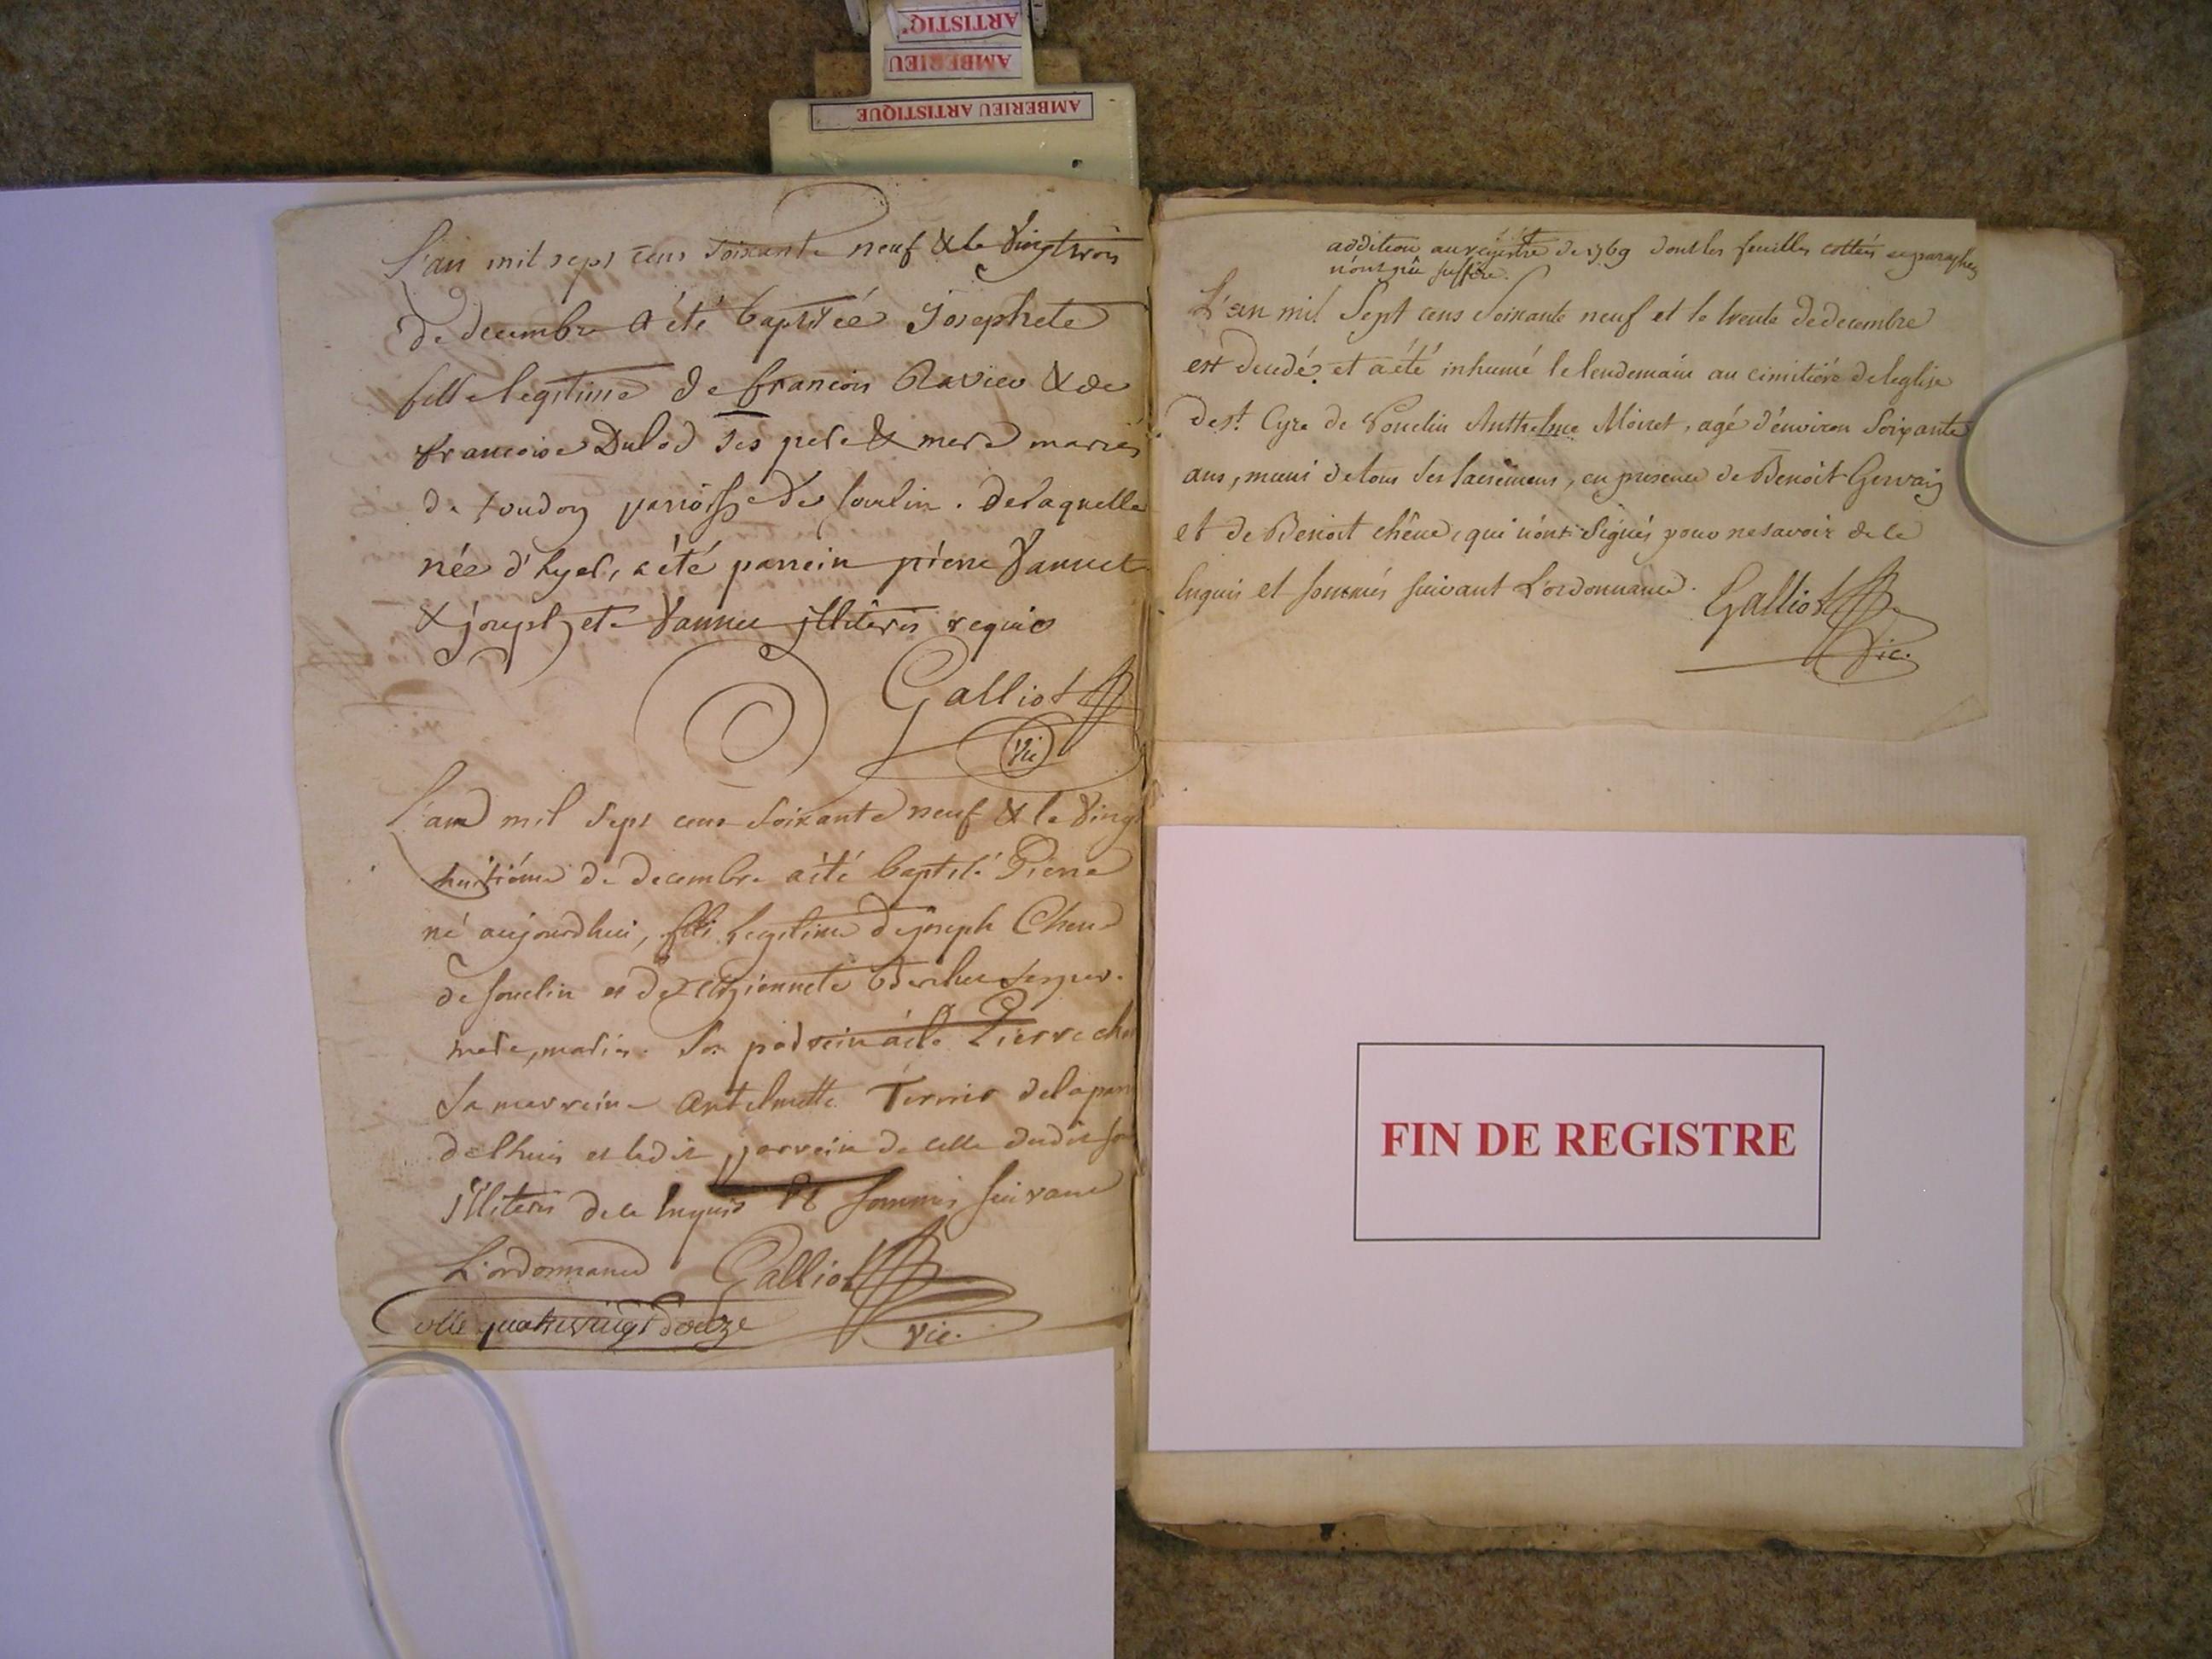 ARTISTIQ'
AMBERIEU
AMBERIEU ARTISTIQUE
L'an mil sept cens soixante neuf & le vingt trois
de decembre a été baptisée Josephete
fille legitime de francois Ravier & de
francoise Dulod ses pere & mere mariés
de soudon parroisse de souclin. de laquelle
née d'hyer, a été parrein pierre Vannet
& josephete Vannet jlliterés requis
Galliot
vic
L'an mil sept cens soixante neuf & le vingt
huitiéme de decembre a été baptisé Pierre
né aujourdhui, fils legitime de joseph Chene
de souclin et de etiennete ses per.
mere, mariés. Son parrein a été Pierre che
Sa marreine Antelmette Ternier de la parr
de lhuis et ledit parrein de celle dudit sou
jlliterés de ce enquis & sommés suivant
L'ordonnance Galliot
Cotte quatrevingt douze vic.
addition au registre de 1769 dont les feuilles cottés et paraphés
n'ont pû suffire.
L'an mil Sept cens Soixante neuf et le trente de decembre
est decedé et a été inhumé le lendemain au cimitière de leglise
de st. Cyre de Souclin Anthelme Moiret, agé d'environ Soixante
ans, muni de tous Ses Sacremens, en presence de Benoit Gervais
et de Benoit chêne, qui n'ont Signés pour ne savoir de ce
Enquis et Sommés Suivant L'ordonnance. Galliot
Vic.
FIN DE REGISTRE